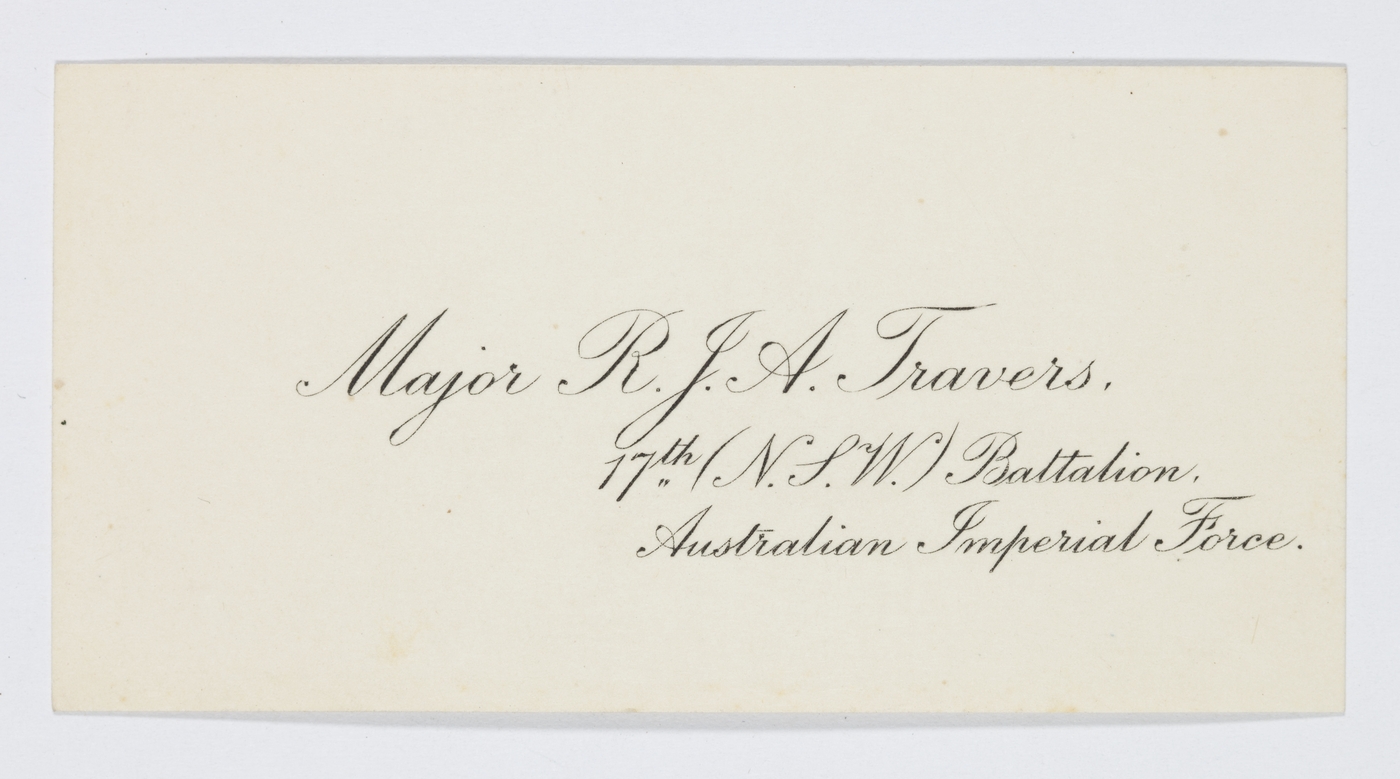 Major R. J. A. Travers,
17th (N. S. W.) Battalion,
Australian Imperial Force.